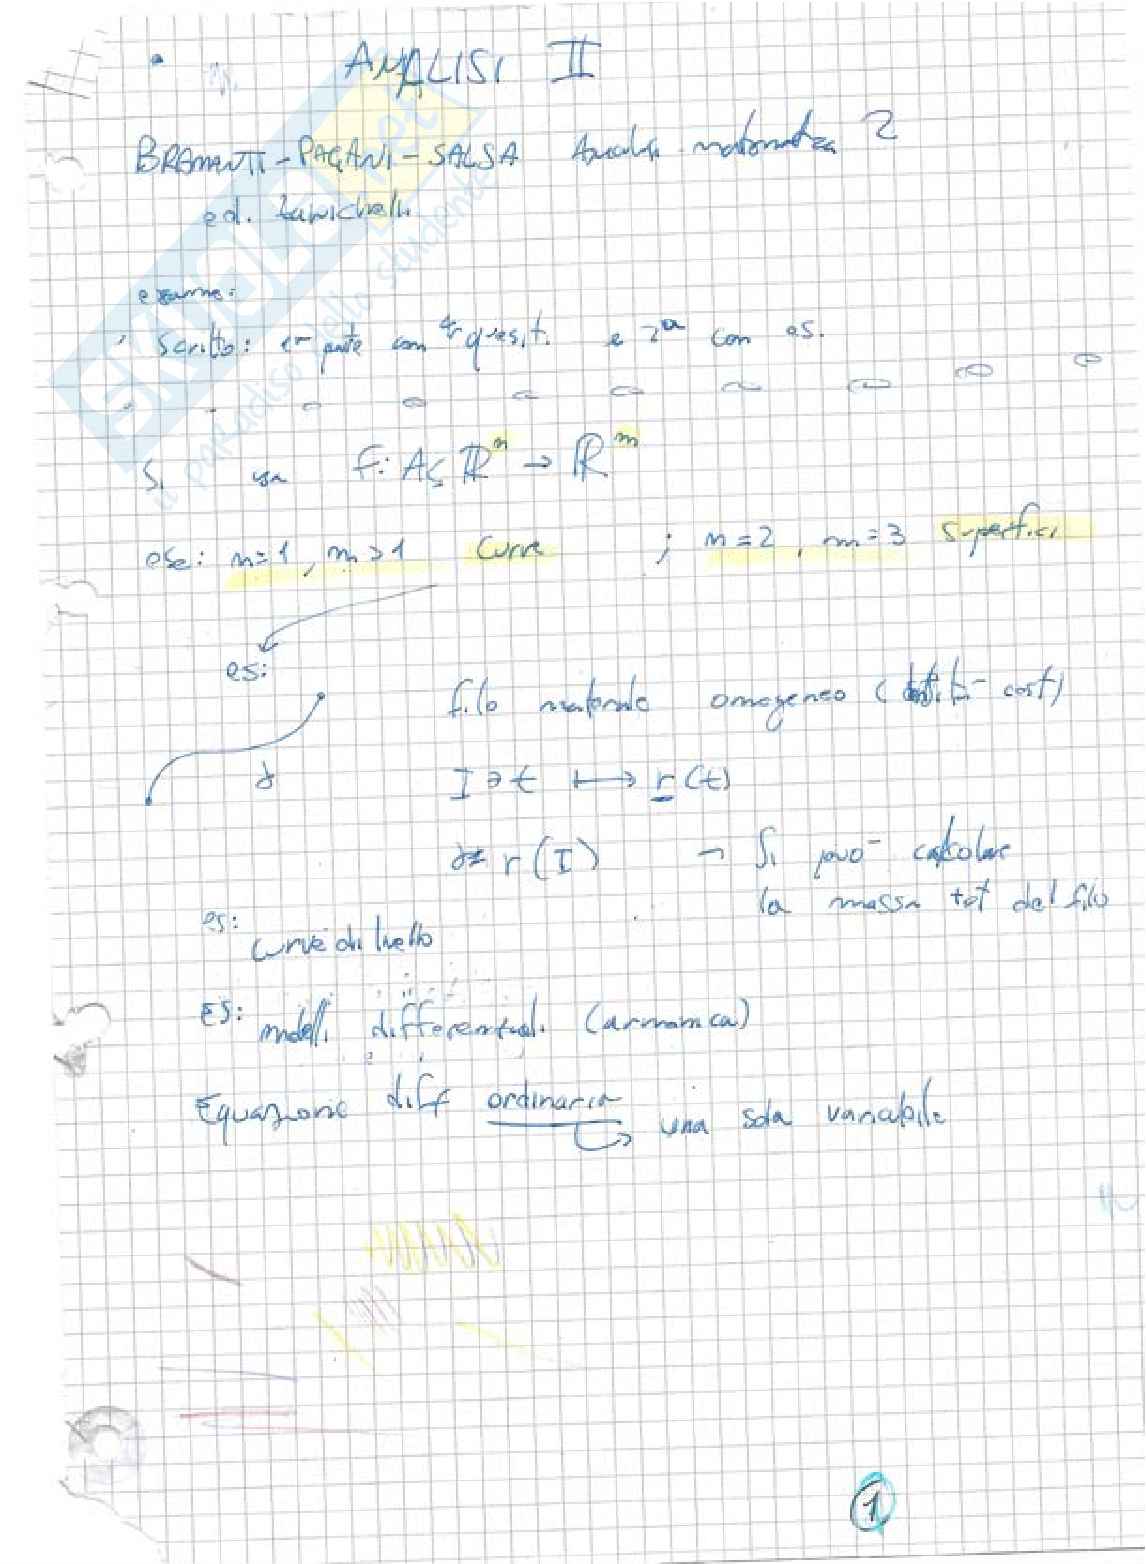 ANALISI II
BRAMANTI-PAGANI-SALSA Analisi matematica 2
ed. Zanichelli
esame:
scritto: 1ª parte con 4 quesiti e 2ª con es.
Si usa f: A ⊆ ℝⁿ → ℝᵐ
ese: n=1, m>1 curve ; n=2, m=3 superfici
es:
filo materiale omogeneo (densità cost)
γ
I ∋ t ↦ r(t)
γ= r(I) → Si può calcolare
la massa tot del filo
es:
curve di livello
ES: modelli differenziali (armonica)
Equazione diff ordinaria
una sola variabile
1
SKUOLA.net
il paradiso dello studente